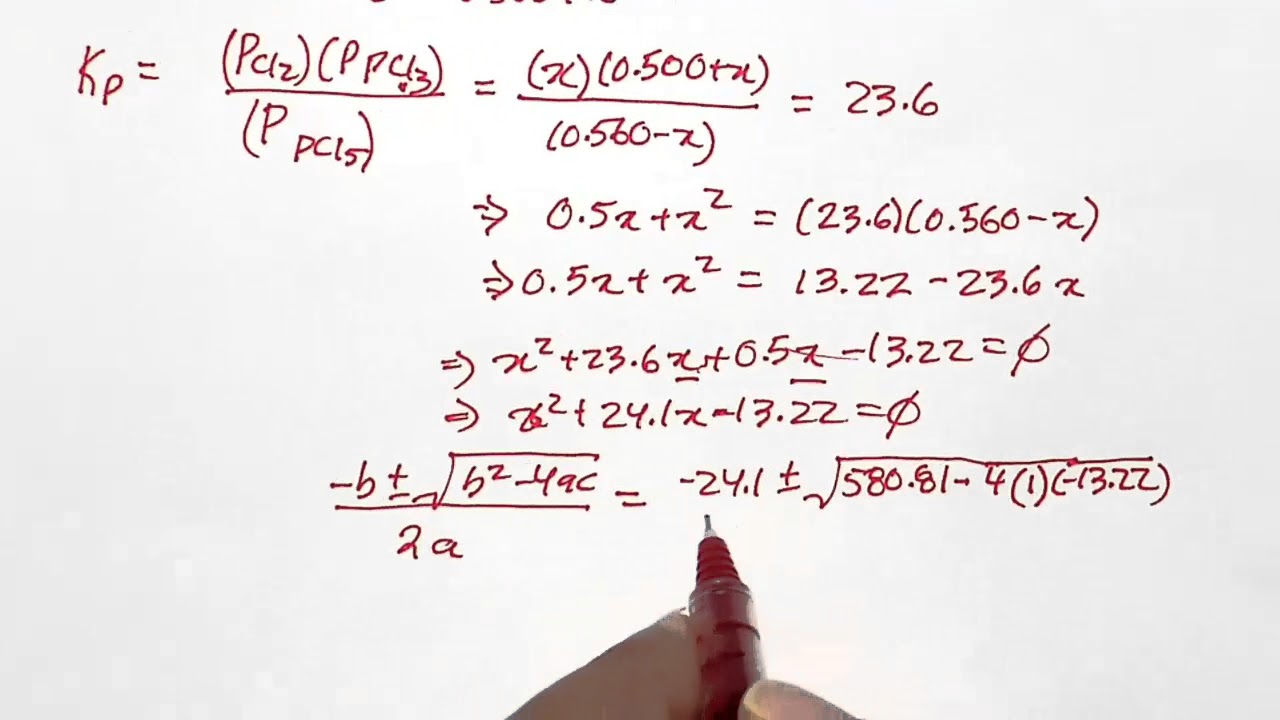 Kp = (PCl2)(P PCl3) / (P PCl5) = (x)(0.500+x) / (0.560-x) = 23.6
⇒ 0.5x+x² = (23.6)(0.560-x)
⇒ 0.5x+x² = 13.22-23.6x
⇒ x²+23.6x+0.5x-13.22=∅
⇒ x²+24.1x-13.22=∅
-b±√b²-4ac / 2a = -24.1±√580.81-4(1)(-13.22)